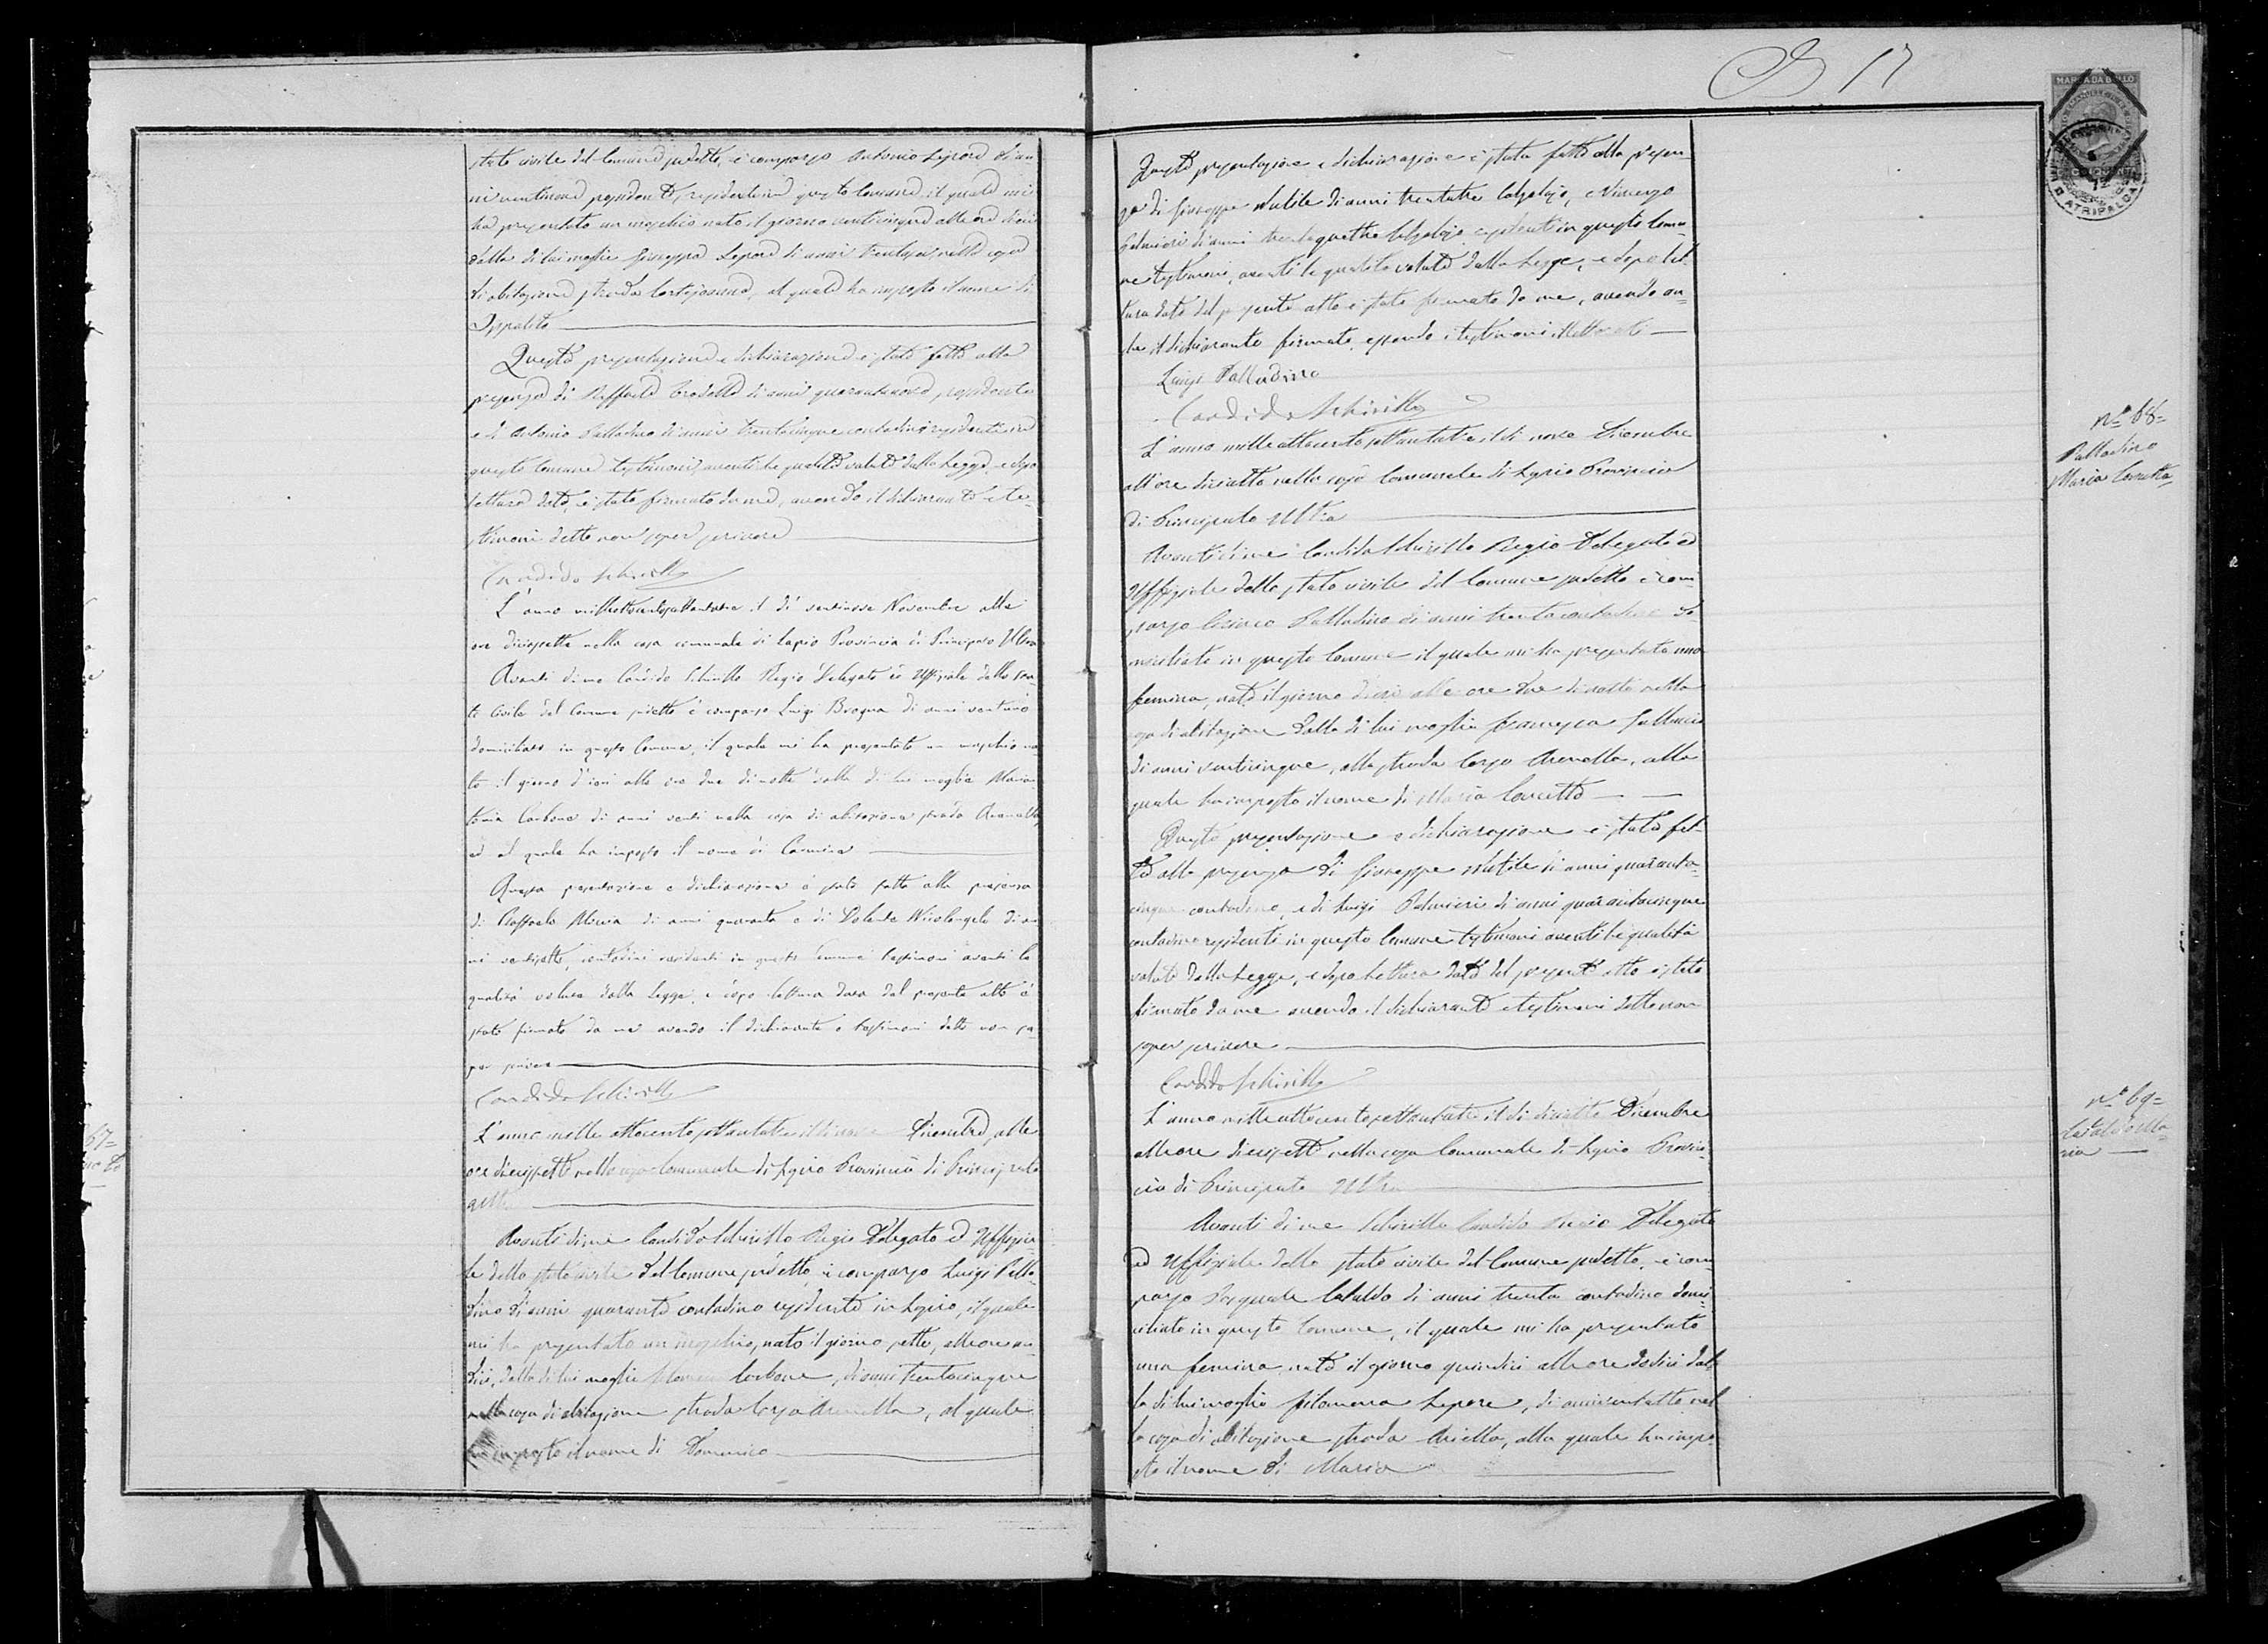 stato civile del Comune pdetto, è comparso Antonio Lepore di an
ni ventinove possidente, residente in questo Comune il quale mi
ha presentato un maschio nato il giorno venticinque alle ore dieci
dalla di lui moglie Giuseppa Lepore di anni trentasei nella casa
di abitazione strada, al quale ha imposto il nome di
Ippolito
Questa presentazione e dichiarazione è stata fatta alla
presenza di Raffaele di anni quarantanove possidente
e di Antonio Palladino di anni trentacinque contadino residenti in
questo Comune testimoni aventi le qualità volute dalla Legge, e dopo
lettura data, è stato firmato da me, avendo il dichiarante e te-
stimoni detto non saper scrivere
Candido Schirillo
L'anno milleottocentosettantatre il dì ventinove Novembre alle
ore diciassette nella casa comunale di Lapio Provincia di Principato Ultra
Avanti di me Candido Schirillo Regio Delegato ed Uffiziale dello sta-
to Civile del Comune pidetto è comparso Luigi di anni ventuno
domiciliato in questo Comune, il quale mi ha presentato un maschio na-
to il giorno d'ieri alle ore due di notte dalla di lui moglie Marian-
tonia Carbone di anni venti nella casa di abitazione strada Arenella,
ed al quale ha imposto il nome di Carmine
Questa presentazione e dichiarazione è stata fatta alla presenza
di Raffaele di anni quaranta e di Nicolangelo di an-
ni ventisette, contadini residenti in questo Comune testimoni aventi le
qualità volute dalla Legge, e dopo lettura data del presente atto è
stato firmato da me avendo il dichiarante e testimoni detto non sa-
per scrivere
Candido Schirillo
67=
L'anno mille ottocento settantatre il dì nove Dicembre, alle
ore diciassette nella casa Comunale di Lapio Provincia di Principato
Ultra
Avanti di me Candido Schirillo Regio Delegato ed Uffizia-
le dello stato civile del Comune pidetto, è comparso Luigi Palla-
dino di anni quaranta contadino residente in Lapio, il quale
mi ha presentato un maschio, nato il giorno sette, alle ore un-
dici, dalla di lui moglie Carbone, di anni trentacinque
nella casa di abitazione strada Corso Arenella, al quale
ha imposto il nome di Domenico
17
MARCA DA BOLLO
ATRIPALDA
Questa presentazione e dichiarazione è stata fatta alla presen-
za di Giuseppe Nutile di anni trentatre Calzolajo, e Vincenzo
Palmieri di anni trentaquattro Calzolajo residenti in questo Comu-
ne testimoni, aventi le qualità volute dalla Legge, e dopo let-
tura data del presente atto è stato firmato da me, avendo an-
che il dichiarante firmato, essendo i testimoni illetterati
Luigi Palladino
Candido Schirillo
Nº 68=
Palladino
Maria Concetta
L'anno milleottocento settantatre il dì nove Dicembre
all'ore diciotto nella casa Comunale di Lapio Provincia
di Principato Ultra
Avanti di me Candido Schirillo Regio Delegato ed
Uffiziale dello stato civile del Comune pidetto è com-
parso Palladino di anni trenta contadino do-
miciliato in questo Comune il quale mi ha presentato una
femina, nata il giorno d'ieri alle ore due di notte nella
casa di abitazione dalla di lui moglie Francesca
di anni venticinque, alla strada Corso Arenella, alla
quale ha imposto il nome di Maria Concetta
Questa presentazione e dichiarazione è stata fat-
ta alla presenza di Giuseppe Nutile di anni quaranta-
cinque contadino, e di Luigi Palmieri di anni quarantacinque
contadino residenti in questo Comune testimoni aventi le qualità
volute dalla Legge, e dopo lettura data del presente atto è stato
firmato da me avendo il dichiarante e testimoni detto non
saper scrivere
Candido Schirillo
Nº 69=
Cataldo Ma-
ria
L'anno milleottocentosettantatre il dì diciotto Dicembre
alle ore diciassette nella casa Comunale di Lapio Provin-
cia di Principato Ultra
Avanti di me Schirillo Candido Regio Delegato
ed Uffiziale dello stato civile del Comune pidetto, è com-
parso Pasquale Cataldo di anni trenta contadino domi-
ciliato in questo Comune, il quale mi ha presentato
una femina, nata il giorno quindici alle ore dodici dal-
la di lui moglie Filomena Lepore, di anni ventotto nel-
la casa di abitazione strada Ariella, alla quale ha impo-
sto il nome di Maria